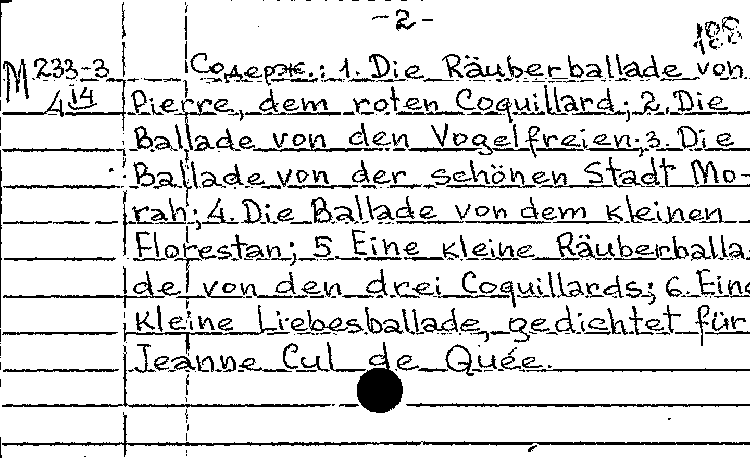 -2-
188
M 233-3 Содерж.: 1. Die Räuberballade von
4 14 Pierre, dem roten Coquillard; 2. Die
Ballade von den Vogelfreien; 3. Die
Ballade von der schönen Stadt Mo-
rah; 4. Die Ballade von dem kleinen
Florestan; 5. Eine kleine Räuberballa-
de von den drei Coquillards; 6. Eine
kleine Liebesballade, gedichtet für
Jeanne Cul de Quée.